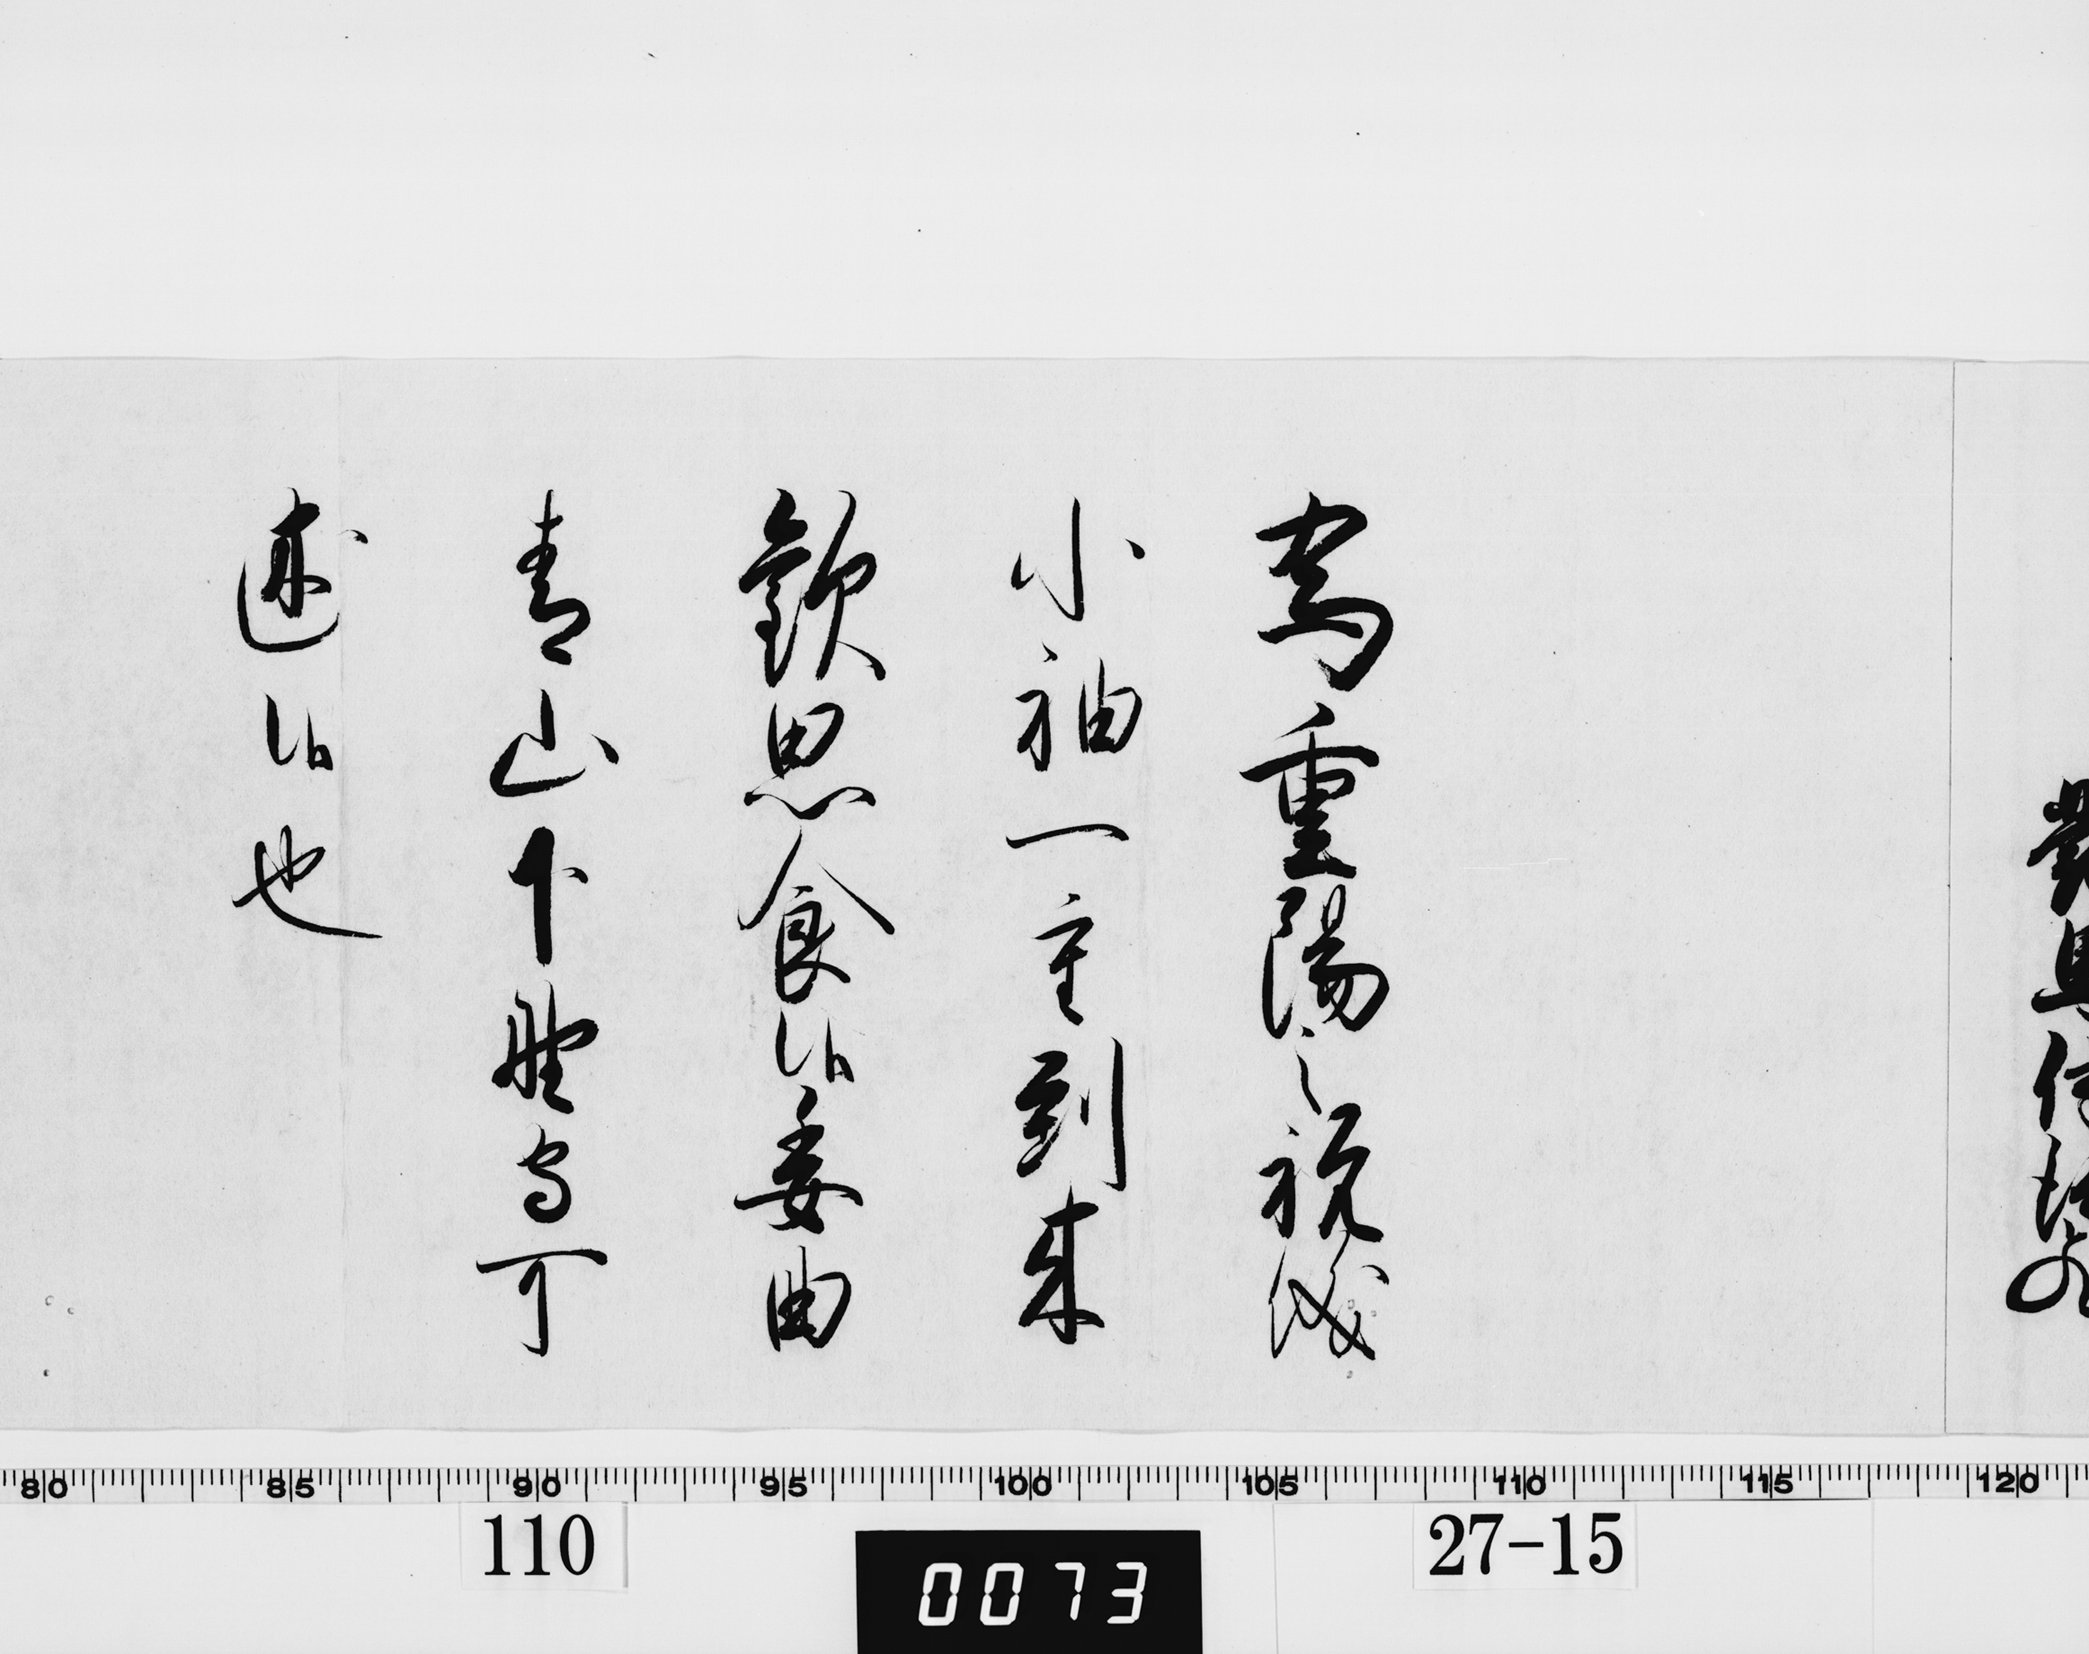 為重陽之祝儀
小袖一重到来
歓思食候委曲
青山下野守可
述候也
80 85 90 95 100 105 110 115 120
110
27-15
0073